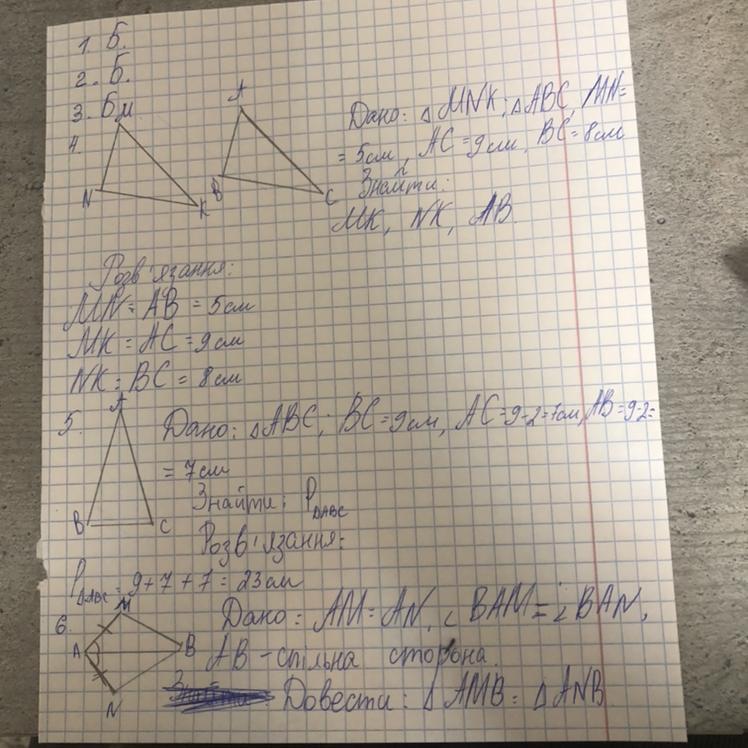 1. Б.
2. Б.
3. Б
4.
M
N
K
A
B
C
Дано: △MNK; △ABC, MN=
= 5см, AC = 9см, BC = 8см
Знайти:
MK, NK, AB
Розв'язання:
MN = AB = 5см
MK = AC = 9см
NK = BC = 8см
5.
A
B
C
Дано: △ABC; BC = 9см, AC = 9-2=7см, AB = 9-2=
= 7см
Знайти: P△ABC
Розв'язання:
P△ABC = 9+7+7 = 23см
6.
M
A
B
N
Дано: AM = AN, ∠BAM = ∠BAN,
AB - спільна сторона.
Довести: △AMB = △ANB